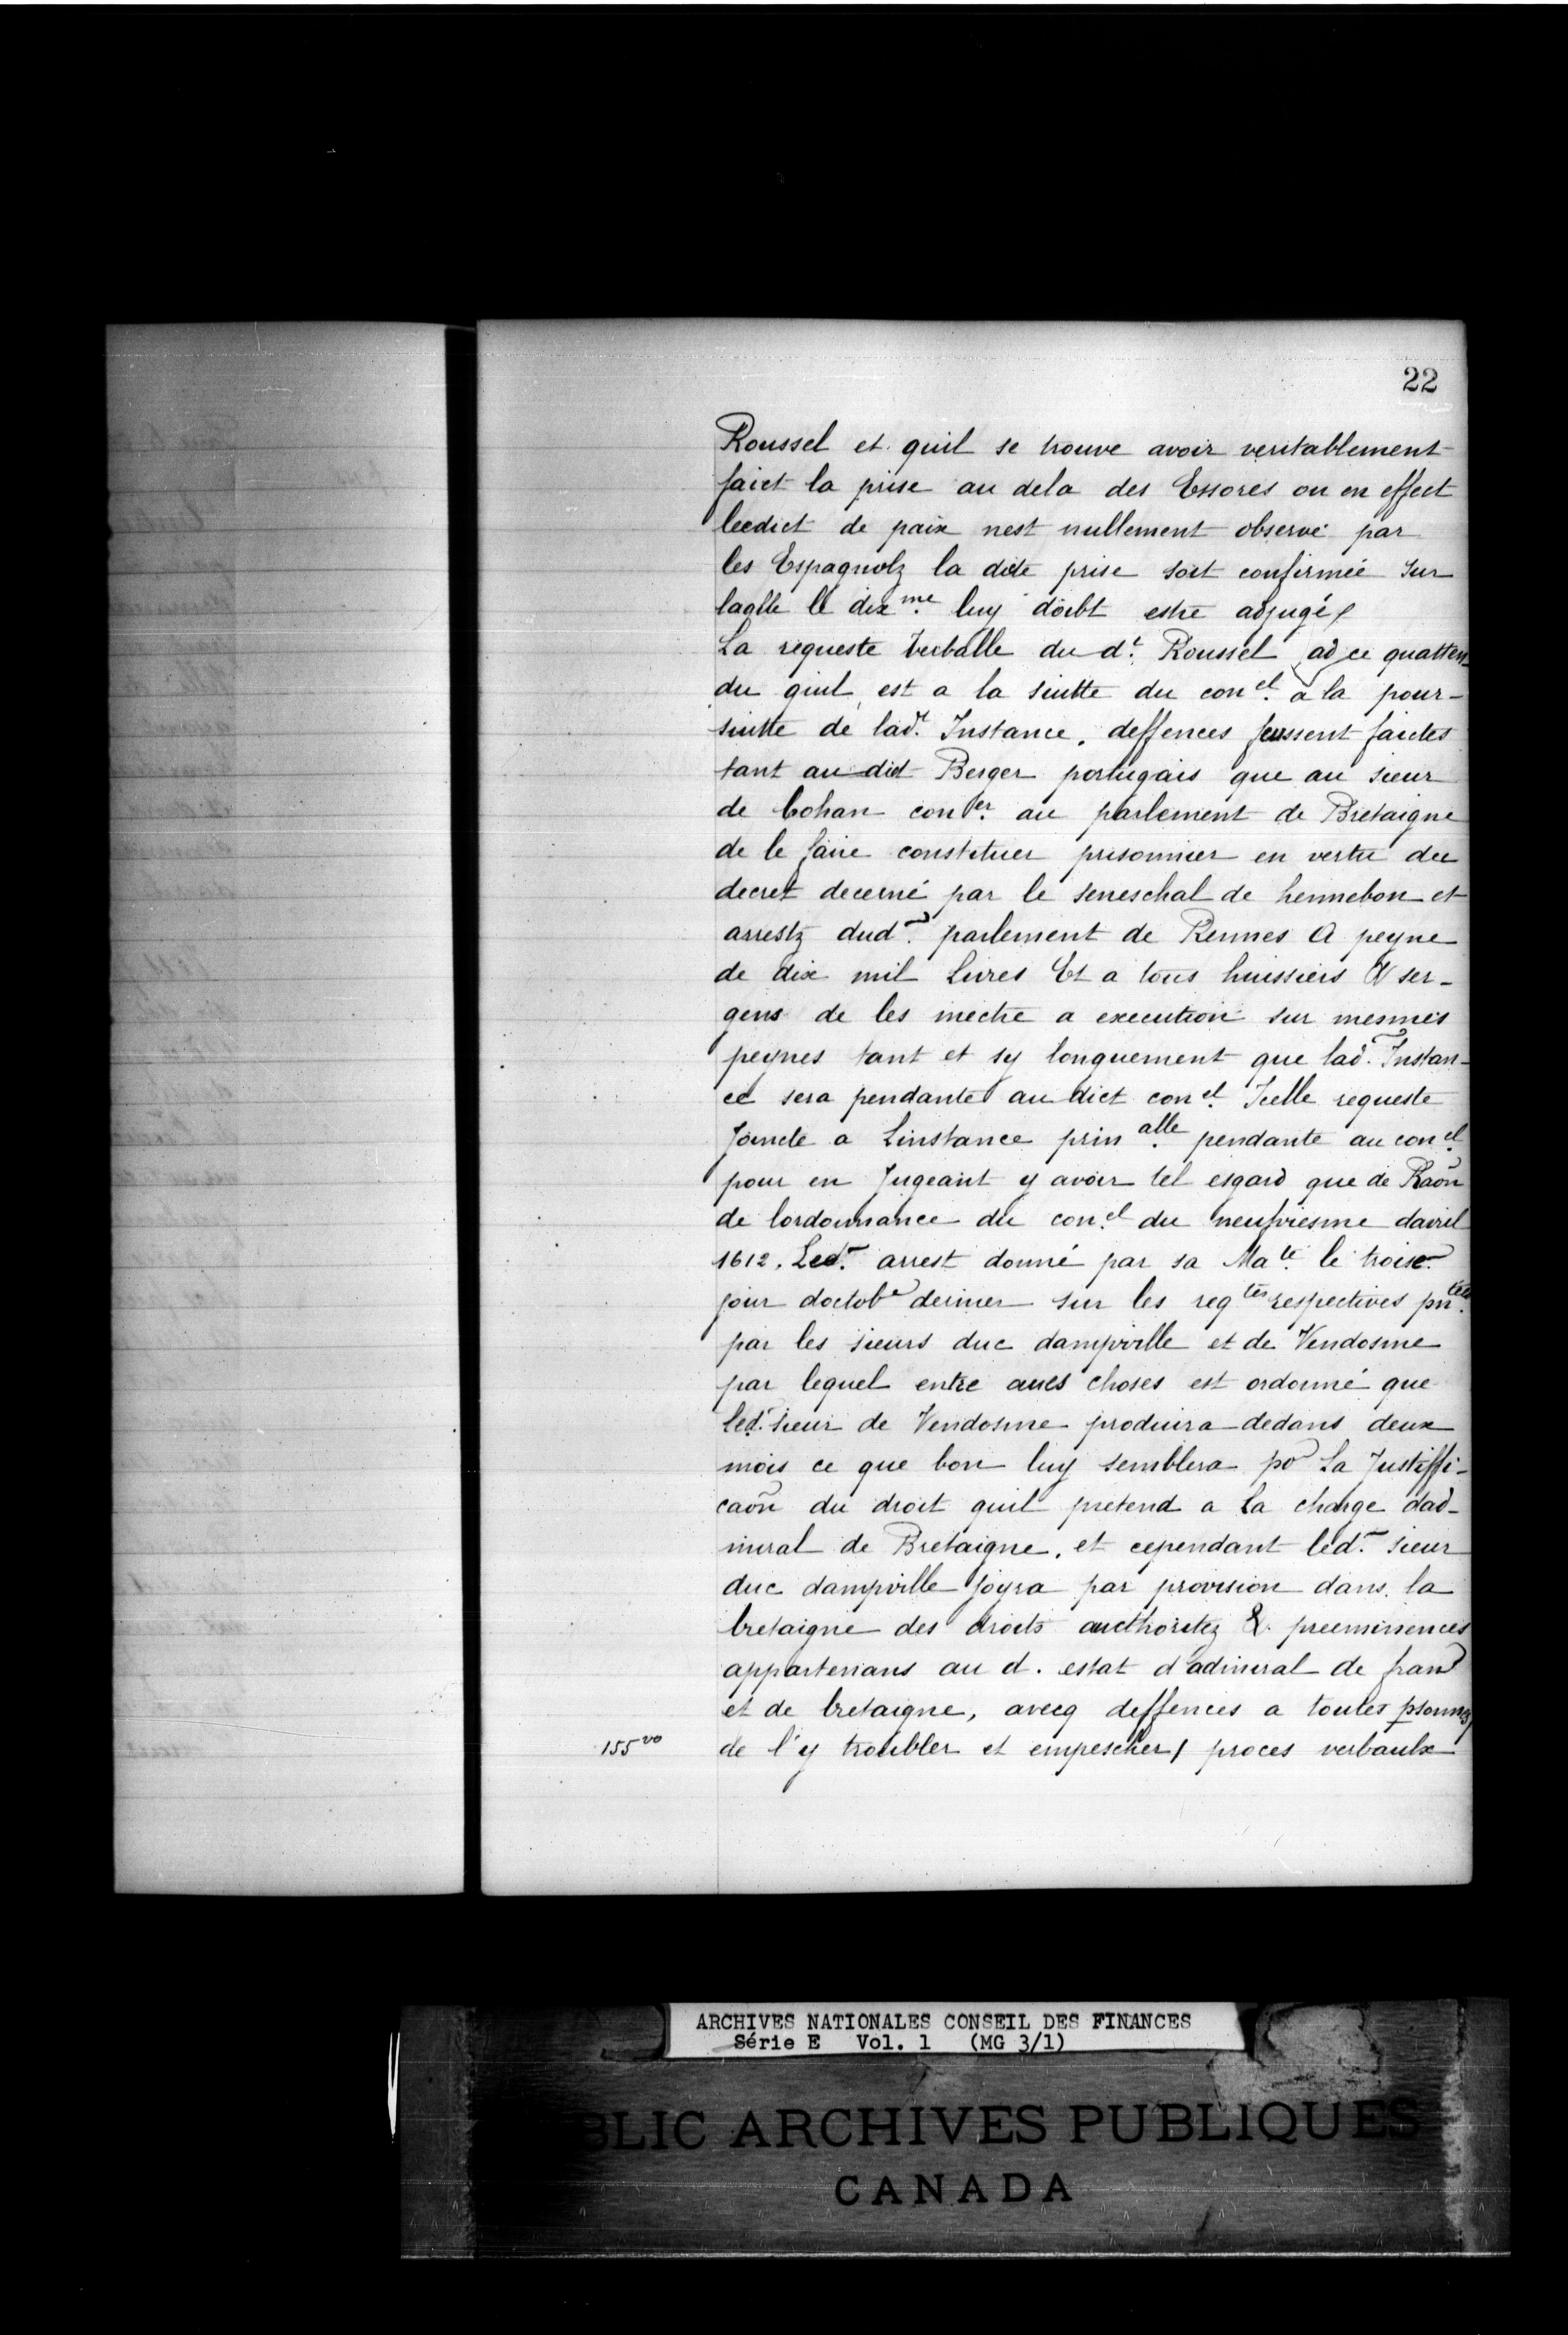 22
Roussel et quil se trouve avoir veritablement
faict la prise au dela des Essores ou en effect
leedict de paix nest nullement observé par
les Espagnolz la dicte prise soit confirmée sur
laqlle le dixme. luy doibt estre adjugé/
La requeste verballe du dt. Roussel ad ce quatten
du quil est a la suitte du conel. a la pour-
suitte de lad. Instance. deffences fussent faictes
tant au dict Berger portugais que au sieur
de Cohan conser. au parlement de Bretaigne
de le faire constituer prisonnier en vertu du
decret decerné par le seneschal de hennebon et
arrestz dud. parlement de Rennes A peyne
de dix mil Livres Et a tous huissiers & ser-
gens de les mectre a execution sur mesmes
peynes tant et sy longuement que lad. Instan-
ce sera pendante au dict conel. Icelle requeste
Joincte a Linstance prinalle. pendante au conel.
pour en Jugeant y avoir tel esgard que de Raõn
de lordonnance du conel. du neufviesme davril
1612. Led. arrest donné par sa Mate. le troise.
jour doctobe dernier sur les reqtes respectives pntes.
par les sieurs duc dampville et de Vendosme
par lequel entre aues choses est ordonné que
led. sieur de Vendosme produira dedans deux
mois ce que bon luy semblera po La Justiffi-
caõn du droit quil pretend a La charge dad-
miral de Bretaigne. et cependant led. sieur
duc dampville joyra par provision dans la
bretaigne des droits aucthoritez & preeminences
appartenans au d. estat d'admiral de fran
et de bretaigne, avecq deffences a toutes psonnes
155 vo de l'y troubler et empescher/ proces verbaulx
ARCHIVES NATIONALES CONSEIL DES FINANCES
Série E Vol. 1 (MG 3/1)
BLIC ARCHIVES PUBLIQUES
CANADA